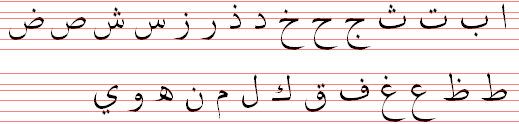 ا ب ت ث ج ح خ د ذ ر ز س ش ص ض
ط ظ ع غ ف ق ك ل م ن ه و ي